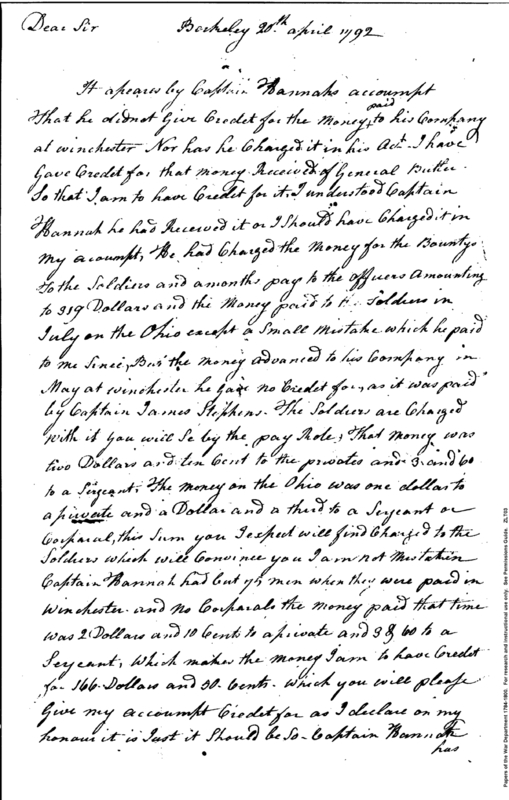 Dear Sir Berkeley 20th april 1792
It apeares by Captain Hannahs accoumpt
That he did not Give Credet for the Money paid to his Company
at winchester Nor has he Charged it in his Act. I have
Gave Credet for that money Received of General Butler.
So that I am to have Credet for it, I understood Captain
Hannah he had Receved it or I Should have Charged it in
my acoumpt, He had Charged the Money for the Bountys
To the Soldiers and a months pay to the officers Amounting
to 359 Dollars and the Money paid to Soldiers in
July on the Ohio except a Small mistake which he paid
to me Since, But the money advanced to his Company in
May at winchester he Gave no Credet for, as it was paid
by Captain James Stephens. The Soldiers are Charged
with it you will Se by the pay Role; That money was
two Dollars and ten Cent to the privates and 3 and 60
to a Sergeant; The money on the Ohio was one dollar to
a private and a Dollar and a third to a Sergeant or
Corparal, this Sum you I expect will find Charged to the
Soldiers which will Convince you I am not Mistaken
Captain Hannah had but 75 men when they were paid in
winchester and no Corparals the money paid that time
was 2 Dollars and 10 Cents to a private and 3 & 60 to a
Sergeant, which makes the money I am to have Credet
for 166 Dollars and 50 Cents. which you will please
Give my accoumpt Credet for as I declare on my
honour it is Just it Should be So Captain Hannah
has
Papers of the War Department 1784-1800. For research and instructional use only. See Permissions Guide. ZLT03